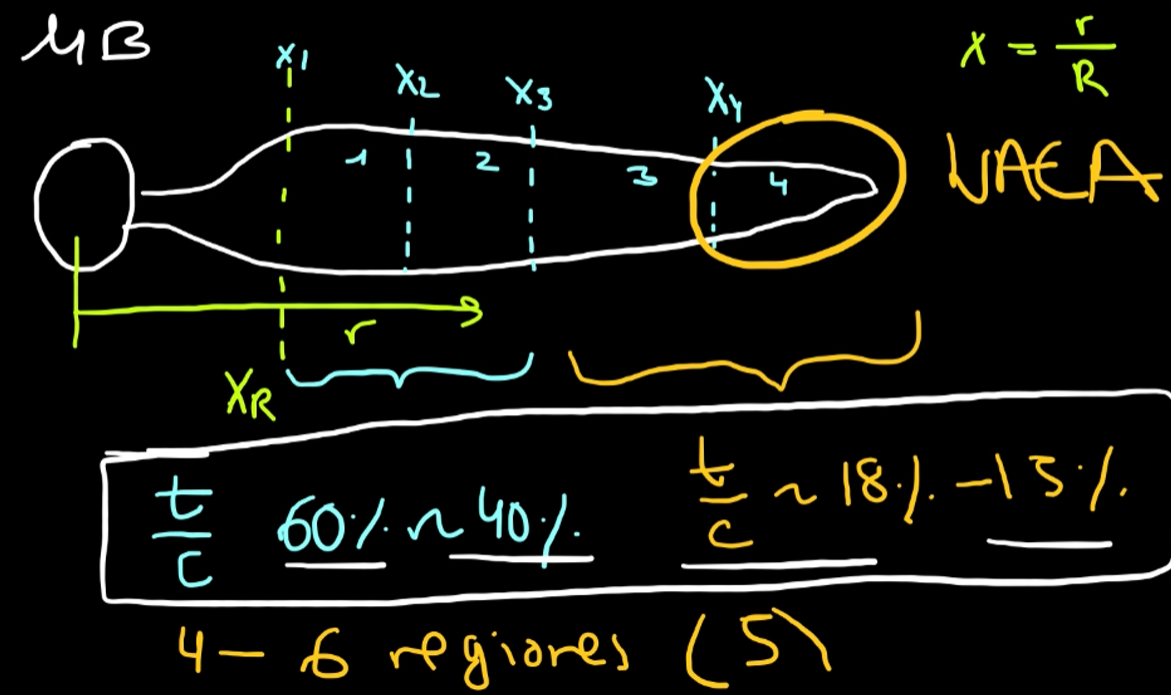 MB
x = r/R
x1
x2
x3
x4
1
2
3
4
NACA
r
xR
t/c 60% ~ 40%
t/c ~ 18% - 15%
4 - 6 regiones (5)